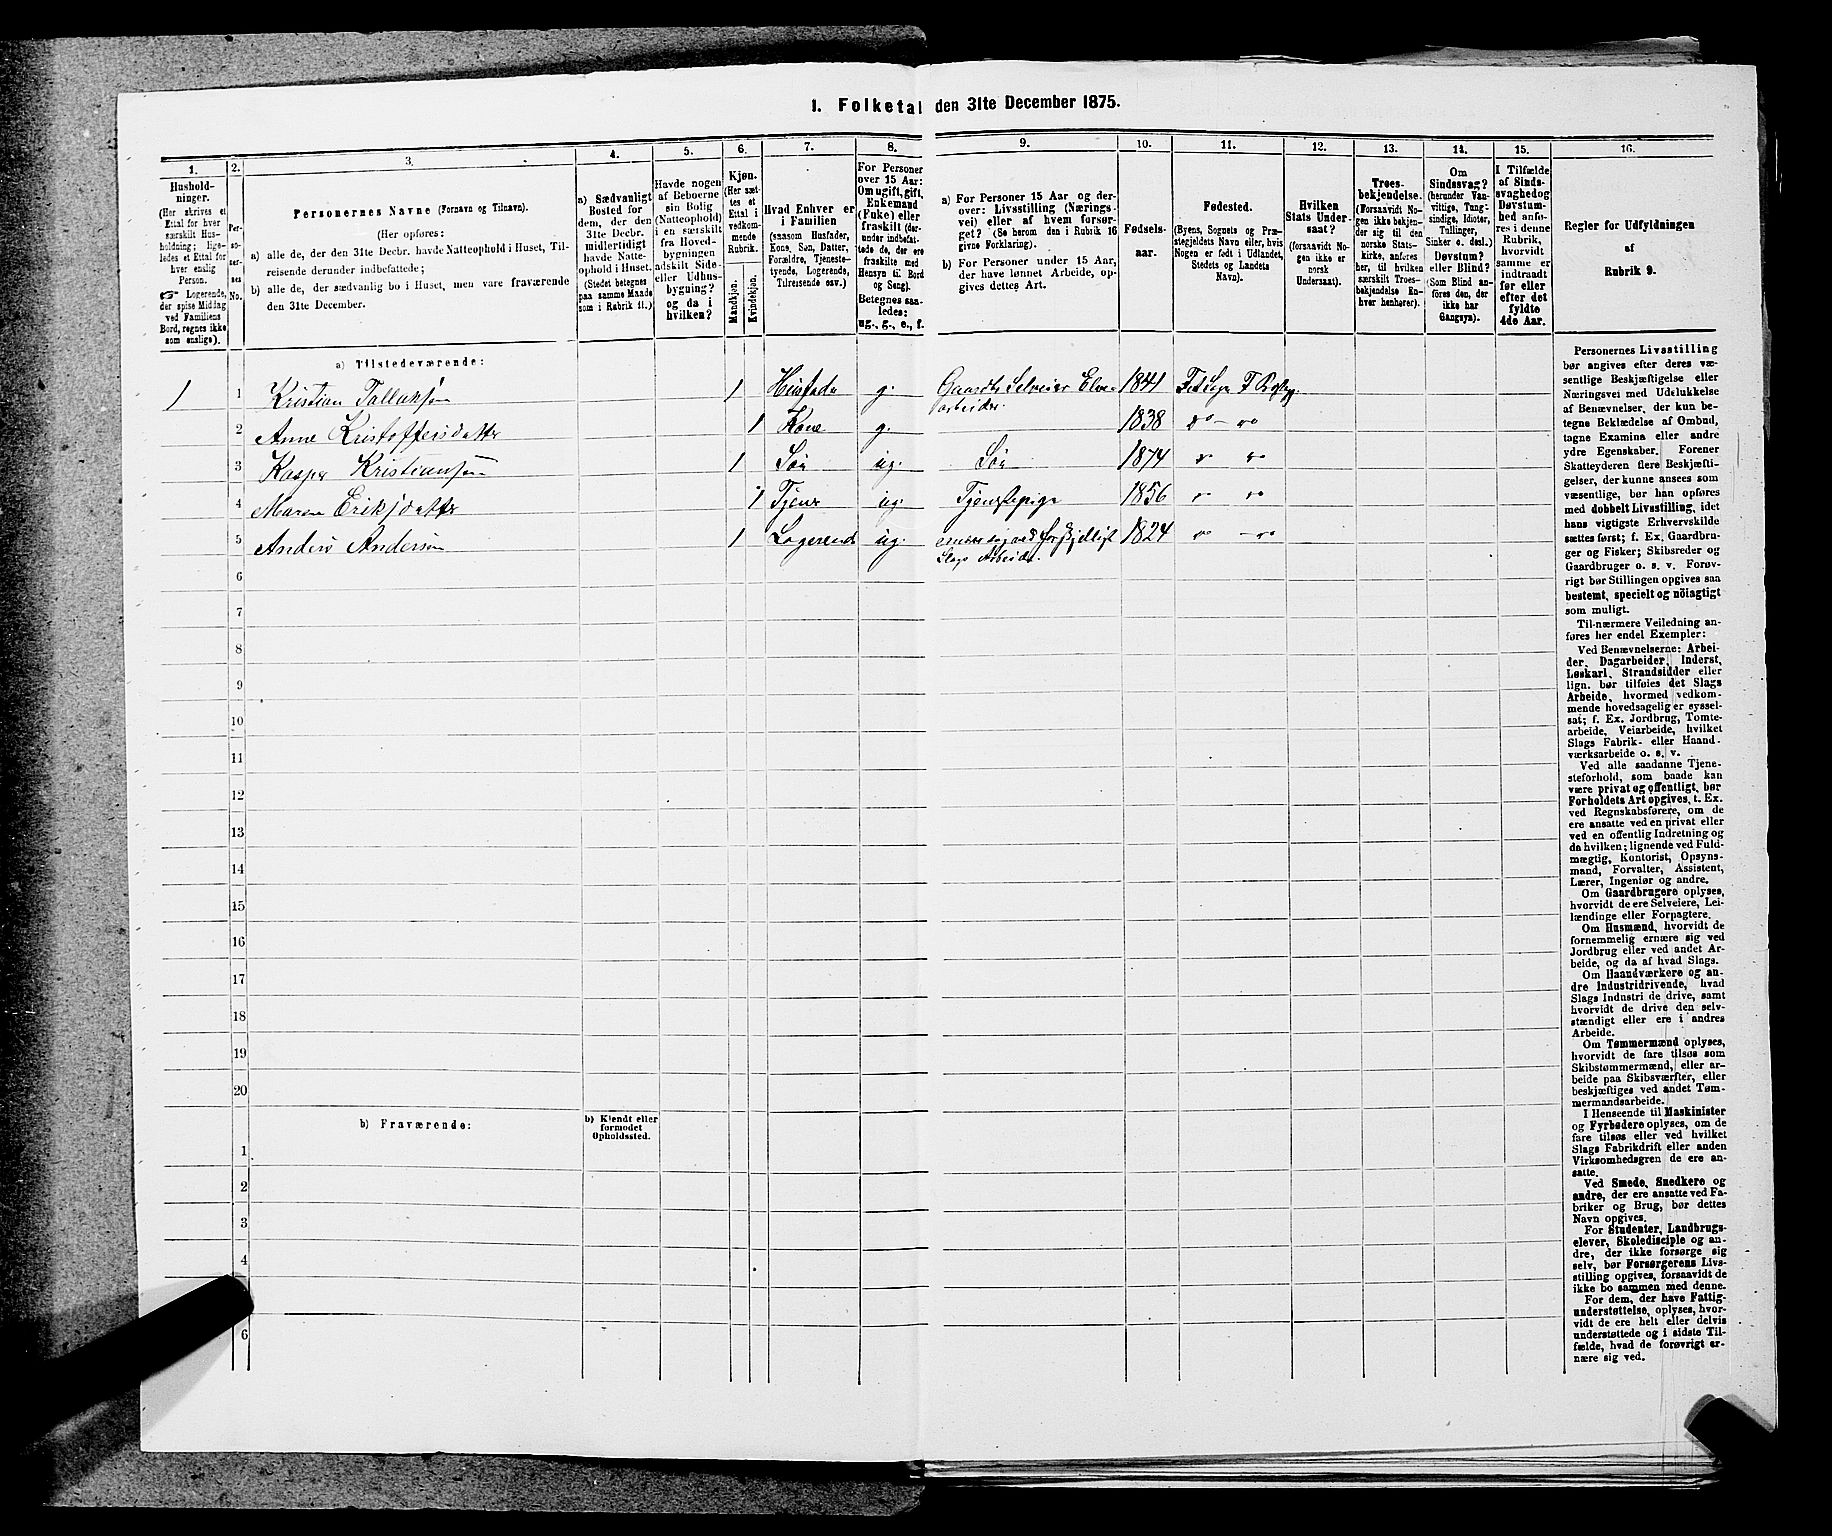 I. Folketal den 31te December 1875.
1. 2. 3. 4. 5. 6. 7. 8. 9. 10. 11. 12. 13. 14. 15. 16.
Hushold-
ninger.
(Her skrives et
Ettal for hver
særskilt Hus-
holdning; lige-
ledes et Ettal for
hver enslig
Person.
☞ Logerende,
der spise Middag
ved Familiens
Bord, regnes ikke
som enslige).
Per-
so-
ner-
nes
No.
Personernes Navne (Fornavn og Tilnavn).
(Her opføres:
a) alle de, der den 31te Decbr. havde Natteophold i Huset, Til-
reisende derunder indbefattede;
b) alle de, der sædvanlig bo i Huset, men vare fraværende
den 31te December.
a) Sædvanligt
Bosted for
dem, der den
31te Decbr.
midlertidigt
havde Natte-
ophold i Huset.
(Stedet betegnes
paa samme Maade
som i Rubrik 11.)
Havde nogen
af Beboerne
sin Bolig
(Natteophold)
i en særskilt
fra Hoved-
bygningen
adskilt Side-
eller Udhus-
bygning?
og da i
hvilken?
Kjøn.
(Her sæt-
tes et
Ettal i
vedkom-
mende
Rubrik.
Mandkjøn.
Kvindekjøn.
Hvad Enhver er
i Familien
(saasom Husfader,
Kone, Søn, Datter,
Forældre, Tjeneste-
tyende, Logerende,
Tilreisende osv.)
For Personer
over 15 Aar:
Om ugift, gift,
Enkemand
(Enke) eller
fraskilt (der-
under indbefat-
tede de, der ere
fraskilte med
Hensyn til Bord
og Seng).
Betegnes saa-
ledes:
ug., g., e., f.
a) For Personer 15 Aar og der-
over: Livsstilling (Nærings-
vei) eller af hvem forsør-
get? (Se herom den i Rubrik 16
givne Forklaring).
b) For Personer under 15 Aar,
der have lønnet Arbeide, op-
gives dettes Art.
Fødsels-
aar.
Fødested.
(Byens, Sognets og Præ-
stegjeldets Navn eller, hvis
Nogen er født i Udlandet,
Stedets og Landets
Navn).
Hvilken
Stats Under-
saat?
(forsaavidt No-
gen ikke er
norsk
Undersaat).
Troes-
bekjendelse.
(Forsaavidt No-
gen ikke bekjen-
der sig til den
norske Stats-
kirke, anføres
her, til hvilken
særskilt Troes-
bekjendelse En-
hver henhører).
Om
Sindssvag?
(herunder Van-
vittige, Tung-
sindige, Idioter,
Tullinger,
Sinker o. desl.)
Døvstum?
eller Blind?
(Som Blind an-
føres den, der
ikke har
Gangsyn).
I Tilfælde
af Sinds-
svaghed og
Døvstum-
hed anfø-
res i denne
Rubrik,
hvorvidt
samme er
indtraadt
før eller
efter det
fyldte
4de Aar.
Regler for Udfyldningen
af
Rubrik 9.
a) Tilstedeværende:
1 1 Kristian Tollaksen 1 Husfader g. Gaardbr. Selveier Elve 1841 Fet Sogn
arbeider.
2 Anne Kristoffersdatter 1 Kone g. 1838 do — do
3 Kasper Kristiansen 1 Søn ug. Søn 1874 do do
4 Maren Eriksdatter 1 Tjener ug. Tjenstepige 1856 do do
5 Anders Andersen 1 Logerend ug. ernærer sig ved forskjelligt 1824 do — do
Slags Arbeide.
6
7
8
9
10
11
12
13
14
15
16
17
18
19
20
b) Fraværende: b) Kjendt eller
formodet
Opholdssted.
1
2
3
4
6
Personernes Livsstilling
bør angives efter deres væ-
sentlige Beskjæftigelse eller
Næringsvei med Udelukkelse
af Benævnelser, der kun be-
tegne Beklædelse af Ombud,
tagne Examina eller andre
ydre Egenskaber. Forener
Skatteyderen flere Beskjæfti-
gelser, der kunne ansees som
væsentlige, bør han opføres
med dobbelt Livsstilling, idet
hans vigtigste Erhvervskilde
sættes først; f. Ex. Gaardbru-
ger og Fisker; Skibsreder og
Gaardbruger o. s. v. Forøv-
rigt bør Stillingen opgives saa
bestemt, specielt og nøiagtigt
som muligt.
Til nærmere Veiledning an-
føres her endel Exempler:
Ved Benævnelserne: Arbei-
der, Dagarbeider, Inderst,
Løskarl, Strandsidder eller
lign. bør tilføies det Slags
Arbeide, hvormed vedkom-
mende hovedsagelig er syssel-
sat; f. Ex. Jordbrug, Tomte-
arbeide, Veiarbeide, hvilket
Slags Fabrik- eller Haand-
værksarbeide o. s. v.
Ved alle saadanne Tjene-
steforhold, som baade kan
være privat og offentligt, bør
Forholdets Art opgives, t. Ex.
ved Regnskabsførere, om de
ere ansatte ved en privat eller
ved en offentlig Indretning og
da hvilken; lignende ved Fuld-
mægtig, Kontorist, Opsyns-
mand, Forvalter, Assistent,
Lærer, Ingeniør og andre.
Om Gaardbrugere oplyses,
hvorvidt de ere Selveiere, Lei-
lændinge eller Forpagtere.
Om Husmænd, hvorvidt de
fornemmelig ernære sig ved
Jordbrug eller ved andet Ar-
beide, og da af hvad Slags.
Om Haandværkere og an-
dre Industridrivende, hvad
Slags Industri de drive, samt
hvorvidt de drive den selv-
stændigt eller ere i andres
Arbeide.
Om Tømmermænd oplyses,
hvorvidt de fare tilsøs som
Skibstømmermænd, eller ar-
beide paa Skibsværfter, eller
beskjæftiges ved andet Tøm-
mermandsarbeide.
I Henseende til Maskinister
og Fyrbødere oplyses, om de
fare tilsøs eller ved hvilket
Slags Fabrikdrift eller anden
Virksomhedsgren de ere an-
satte.
Ved Smede, Snedkere og
andre, der ere ansatte ved Fa-
briker og Brug, bør dettes
Navn opgives.
For Studenter, Landbrugs-
elever, Skoledisciple og an-
dre, der ikke forsørge sig
selv, bør Forsørgerens Livs-
stilling opgives, forsaavidt de
ikke bo sammen med denne.
For dem, der have Fattig-
understøttelse, oplyses, hvor-
vidt de ere helt eller delvis
understøttede og i sidste Til-
fælde, hvad de forøvrigt er-
nære sig ved.